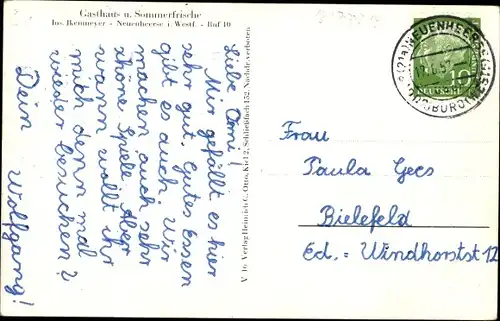 Gasthaus u. Sommerfrische
Jos. Ikenmeyer - Neuenheerse i. Westf. - Ruf 10
Liebe Omi!
Mir gefällt es hier
sehr gut. Gutes Essen
gibt es auch. Wir
machen auch sehr
schöne Spiele. Aber
wann wollt ihr
mich denn mal
wieder besuchen?
Dein
Wolfgang!
V. 16 Verlag Heinrich C. Otto, Kiel 2, Schließfach 152. Nachdr. verboten
NEUENHEERSE
10
Frau
Paula Gees
Bielefeld
Ed. = Windhorstst 12